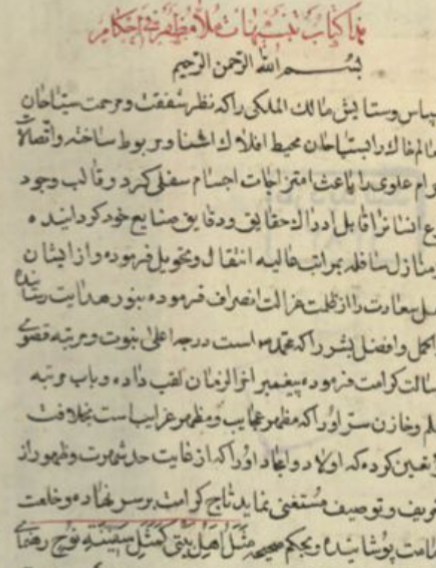 هذا كتاب تنبيهات ملا مظفر في احكام
بسم الله الرحمن الرحيم
سپاس وستايش مالك الملكى راكه نظر شفقت ومرحمت سيّاحان
عالم خاك را بسبّاحان محيط افلاك اشنا ومربوط ساخته واتصالات
علوى را باعث امتزاجات اجسام سفلى كرد وقالب وجود
انسانرا قابل ادراك حقايق ودقايق صنايع خود كردانيده
منازل سافله بمراتب عاليه انتقال وتحويل فرموده واز ايشان
سعادت را از ظلمت ضلالت انصراف فرموده بنور هدايت
اكمل وافضل بشر راكه محمد است درجه اعلى نبوت ومرتبه قصوى
رسالت كرامت فرموده پيغمبر اخر الزمان لقب داده وباب مرتبه
علم وخازن سرّ اوراكه مظهر عجايب ومظهر غرايب است بخلافت
تعيين كرده كه اولاد وامجاد اوراكه از غايت حد شهرت وظهور از
تعريف وتوصيف مستغنى نمايد تاج كرامت برسر نهاده وخلعت
پوشانيده وبحكم صحيحه مثل اهل بيتى كمثل سفينة نوح